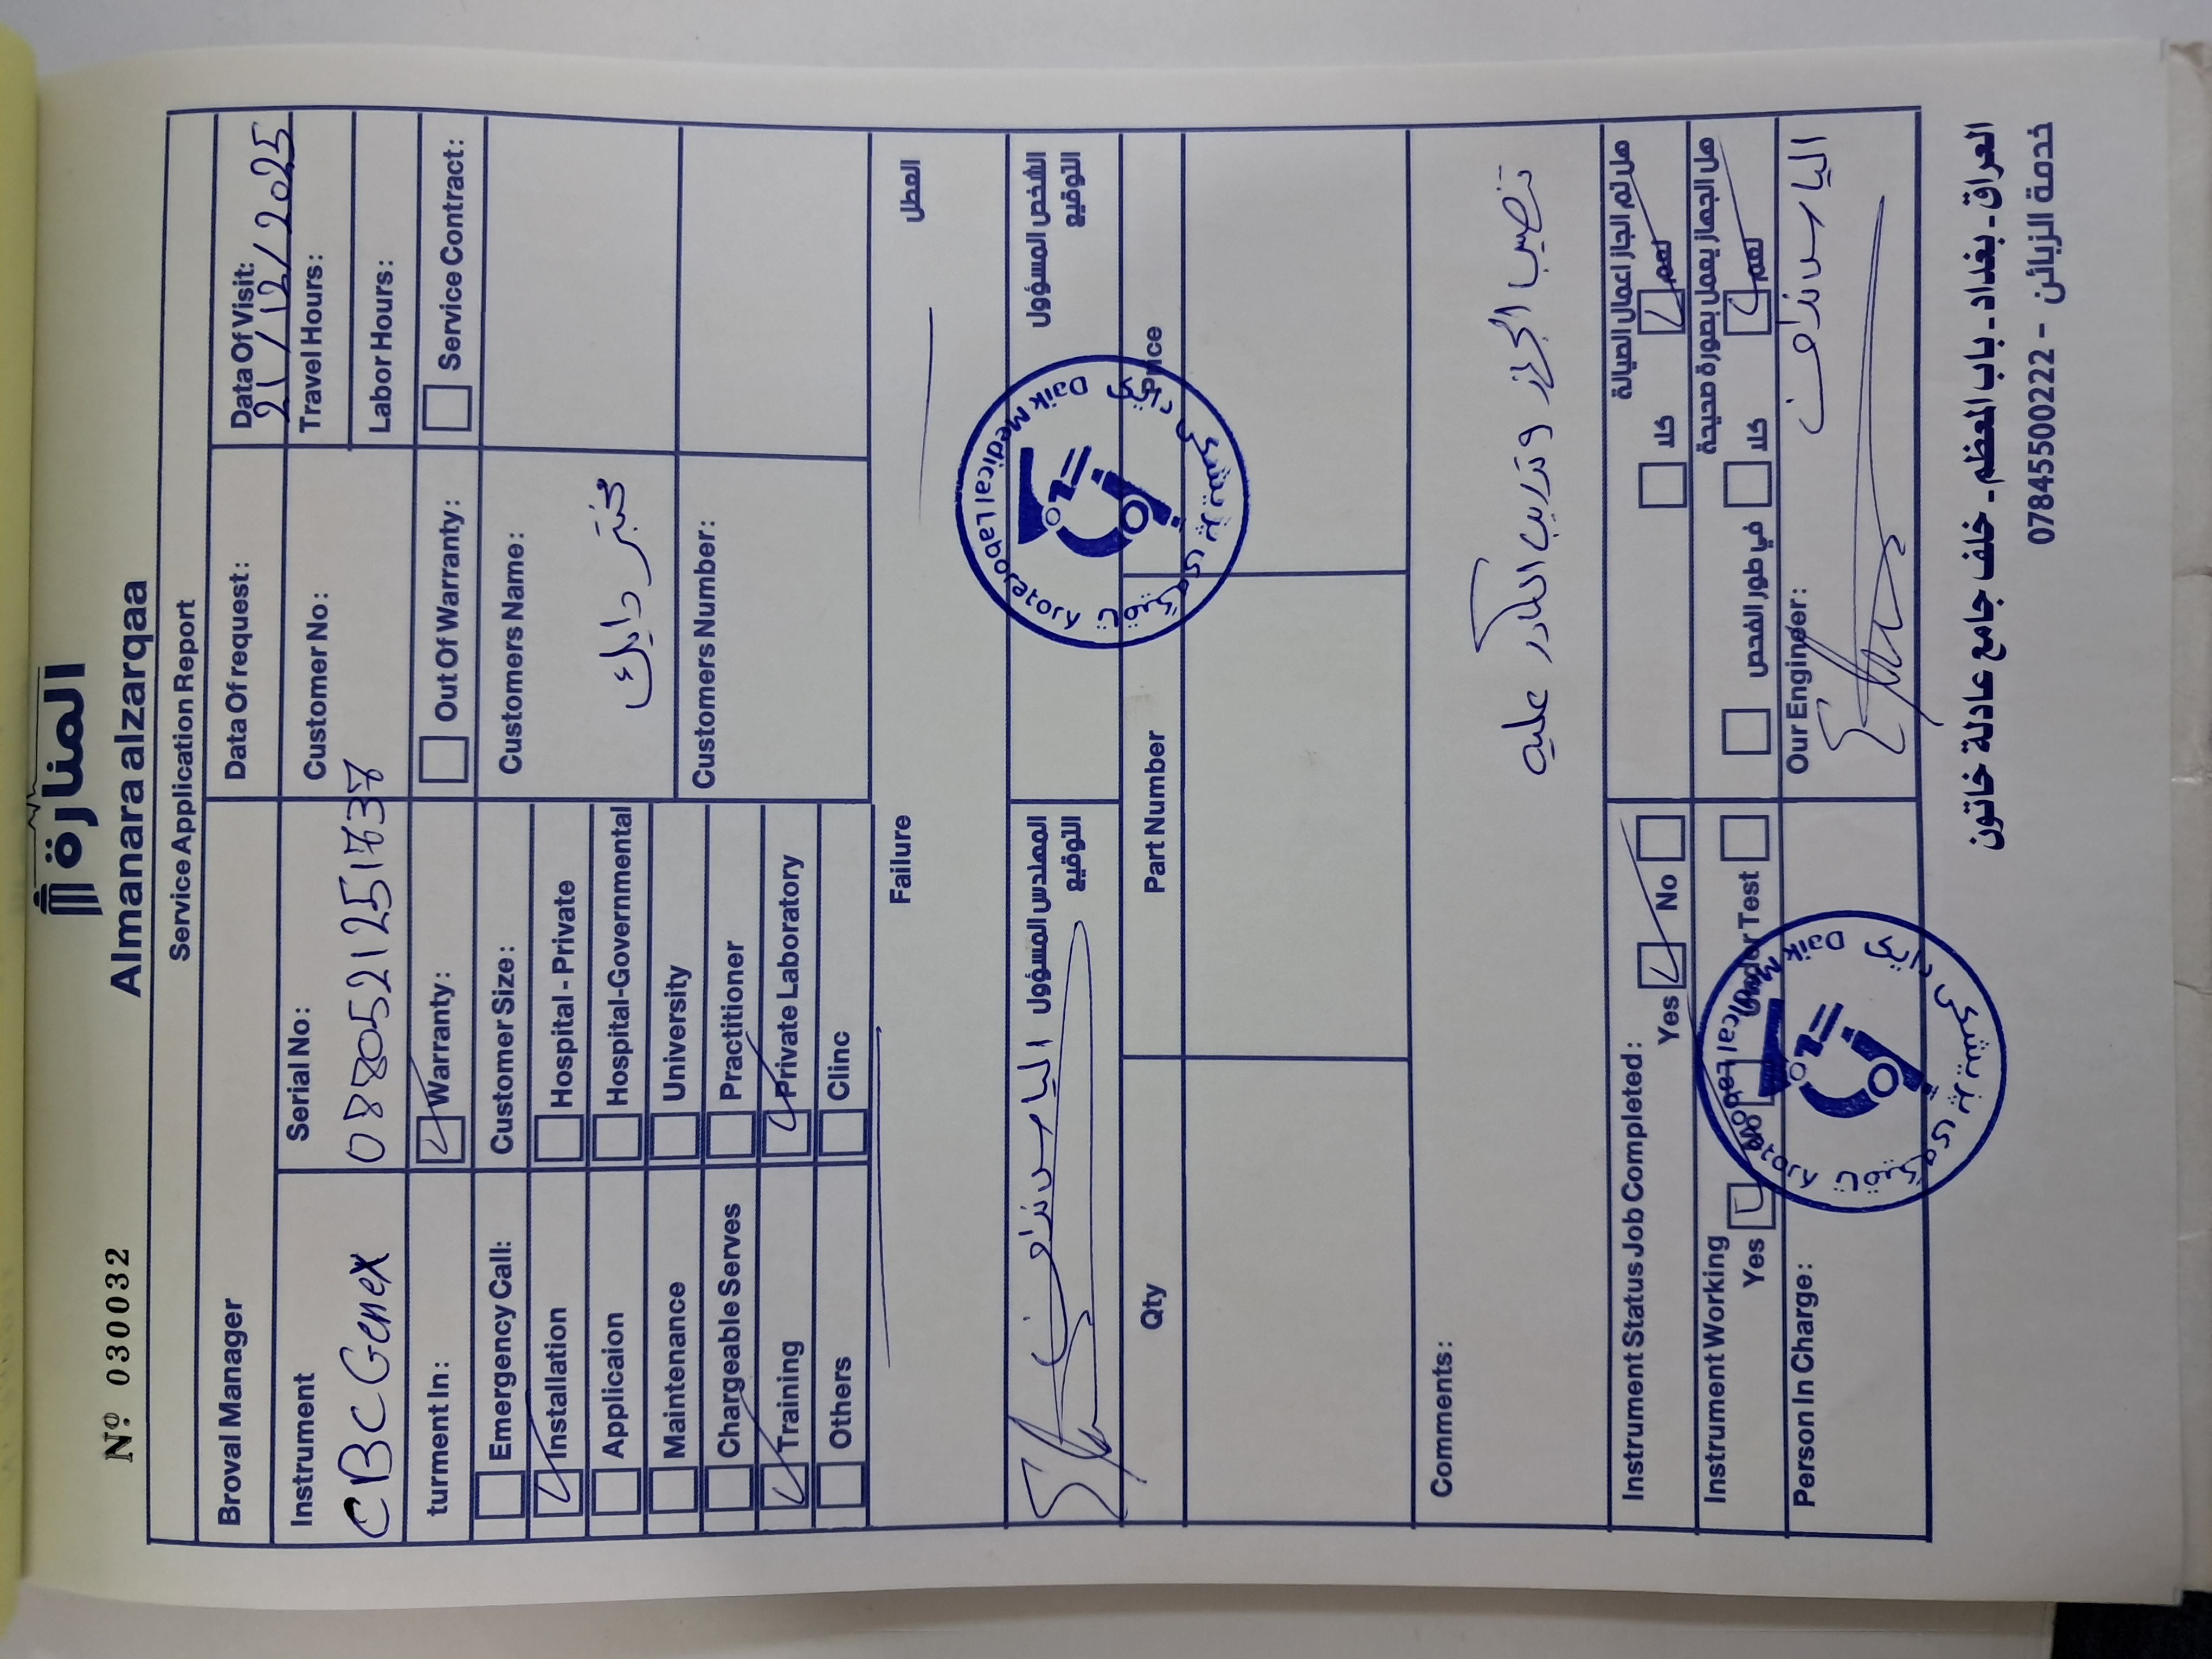 Nº 030032
المنارة
Almanara alzarqaa
Service Application Report
Broval Manager
Data Of request:
Data Of Visit:
21/12/2025
Instrument
CBC Genex
Serial No:
Customer No:
Travel Hours:
Labor Hours:
turment In:
Warranty:
Out Of Warranty:
Service Contract:
Emergency Call:
Customer Size:
Customers Name:
مختبر دايك
Installation
Hospital - Private
Applicaion
Hospital-Governmental
Maintenance
University
Customers Number:
Chargeable Serves
Practitioner
Training
Private Laboratory
Others
Clinc
Failure
العطل
المهندس المسؤول
التوقيع
الشخص المسؤول
التوقيع
Daik Medical Laboratory
Qty
Part Number
Price
Comments:
تنصيب الجهاز وتدريب الكادر عليه
Instrument Status Job Completed:
Yes
No
هل تم انجاز اعمال الصيانة
نعم
كلا
Instrument Working
Yes
No
Under Test
هل الجهاز يعمل بصورة صحيحة
نعم
كلا
في طور الفحص
Person In Charge:
Daik Medical Laboratory
Our Enginder:
خدمة الزبائن - 07845500222